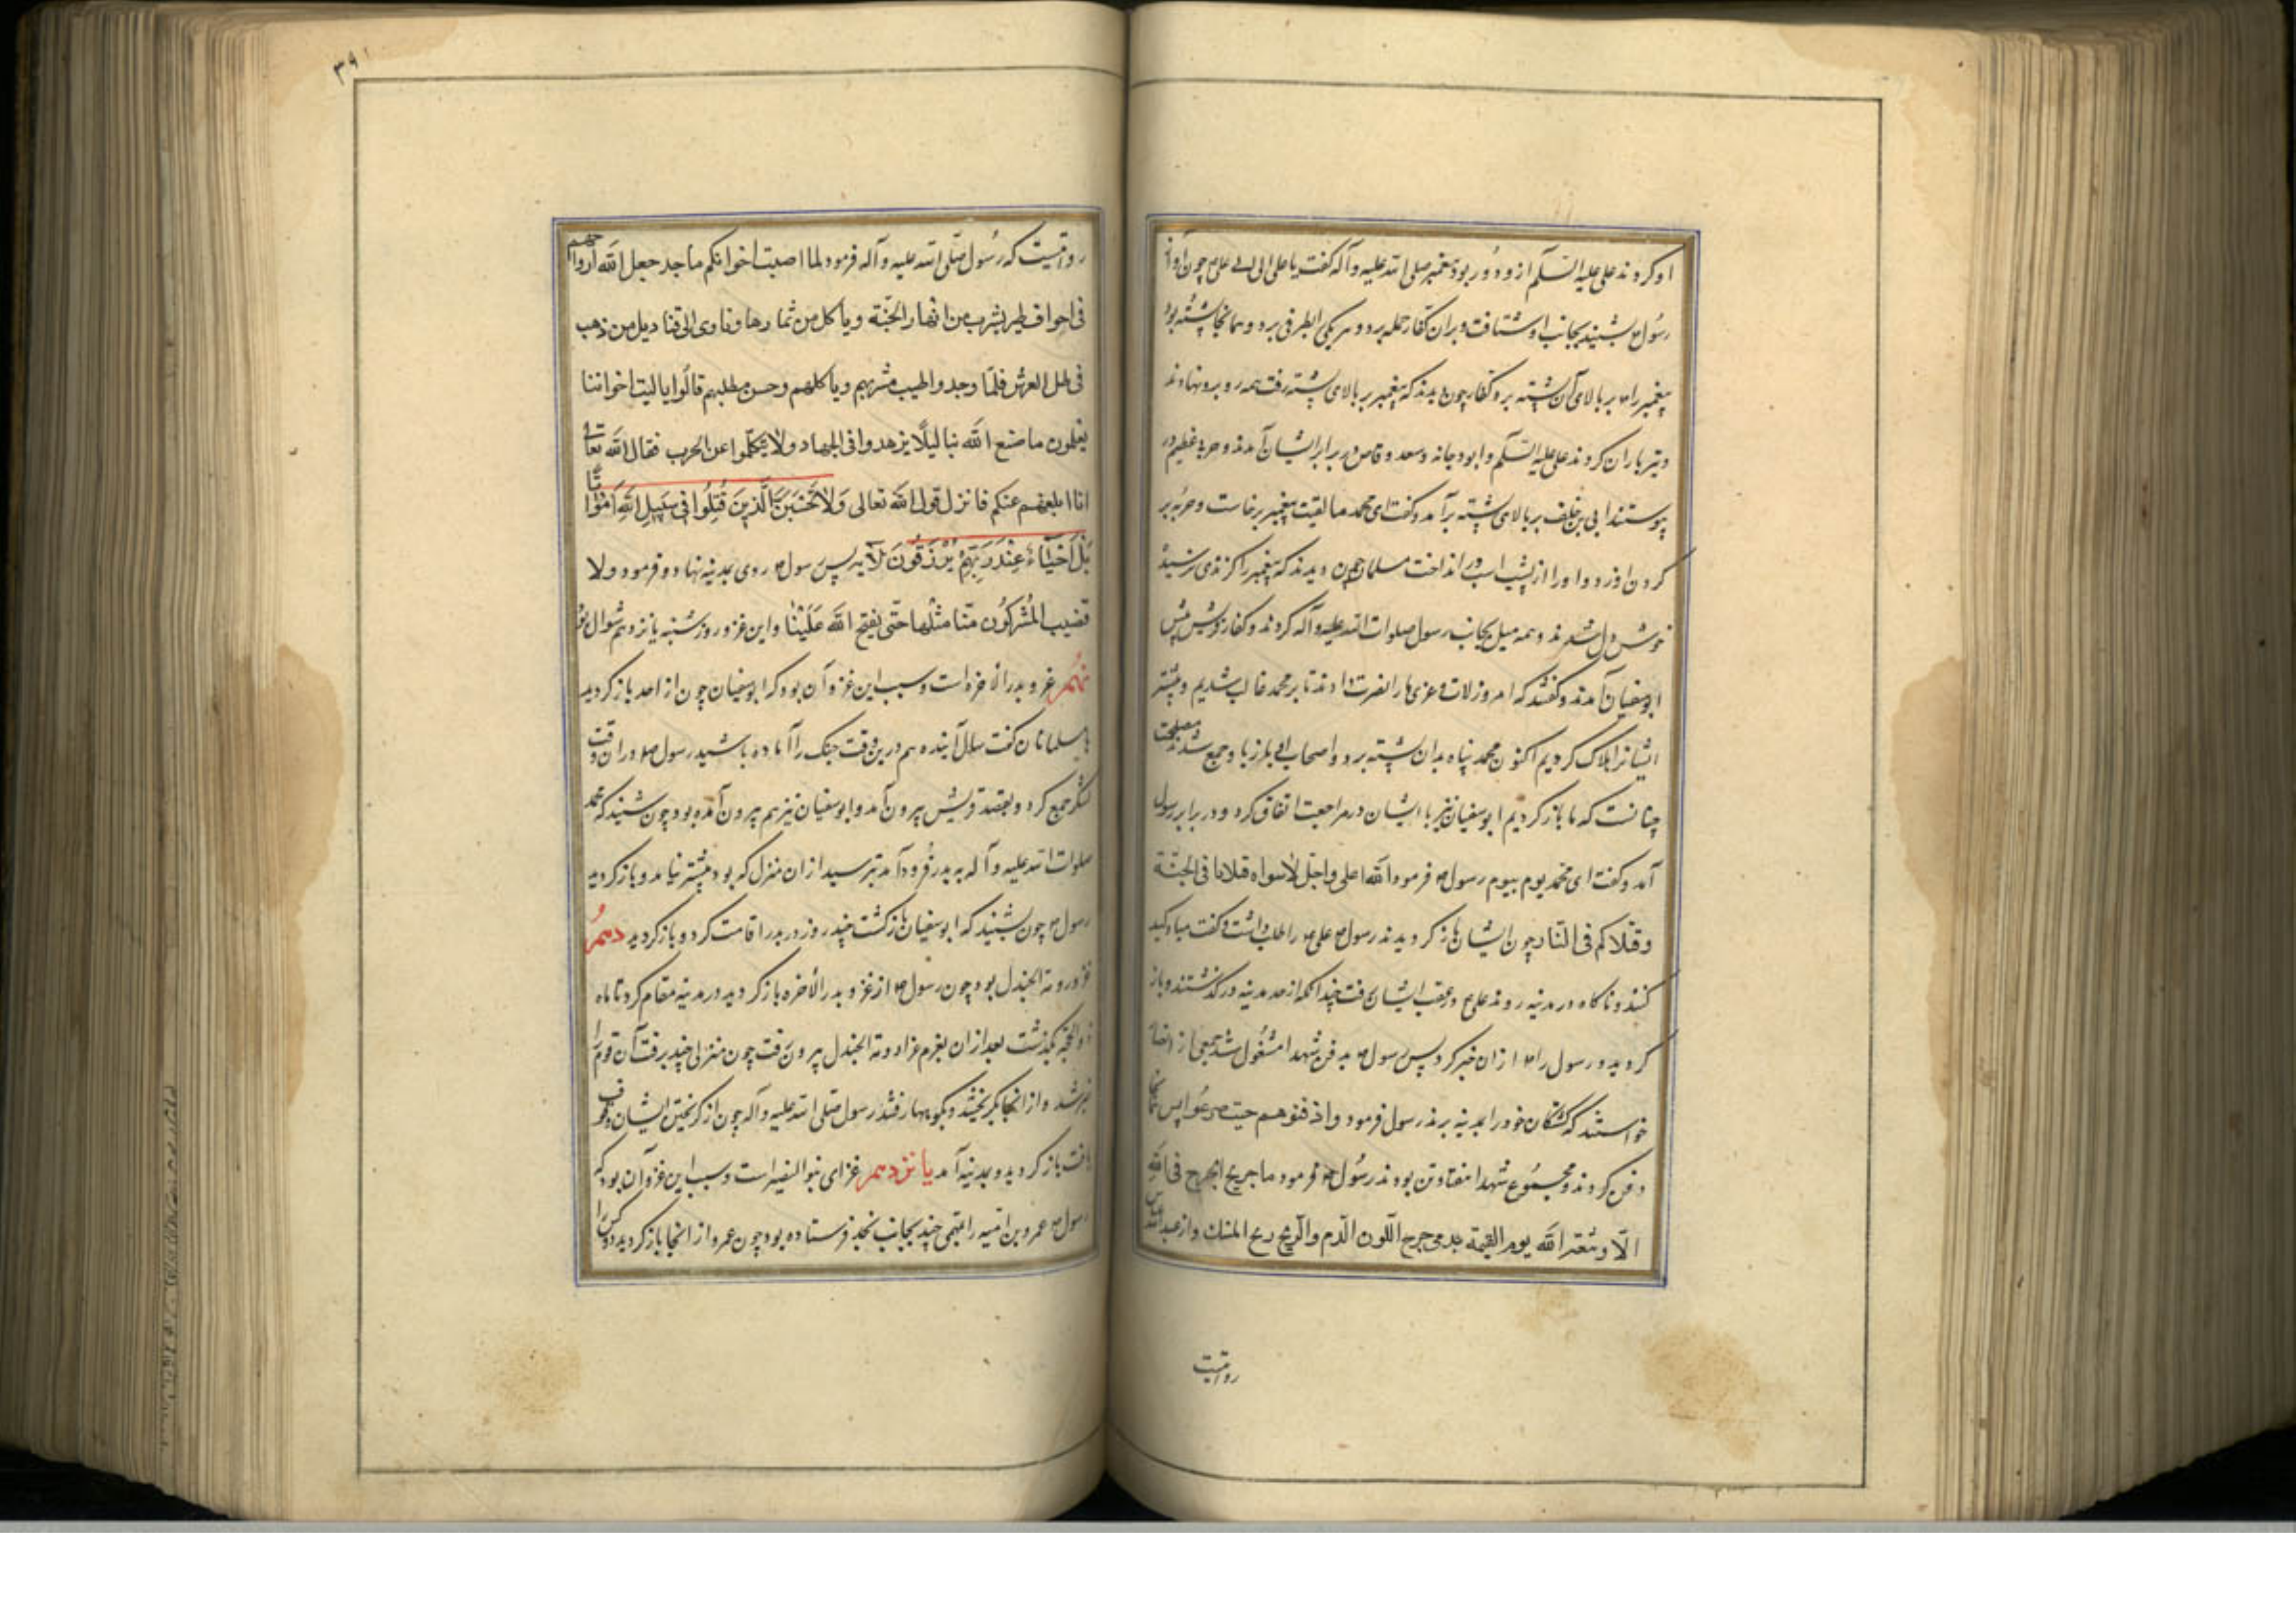 او کردند علی علیه السّلم ازو دور بود پیغمبر صلی الله علیه وآله گفت یا علی الی الی علی چون آواز
رسول ص بشنید بجانب او شتافت و بران کفار حمله برد و هر یکی بطرفی برد و همانجا پشته بود
پیغمبر را ص بر بالای آن پشته برد کفار چون بدیدند که پیغمبر بر بالای پشته رفت همه رو برو نهادند
و تیر باران کردند علی علیه السّلم و ابودجانه و سعد وقاص در برابر ایشان آمدند و حربهٔ عظیم در
پیوستند ابی بن خلف بر بالای پشته برآمد و گفت ای محمد ما لقیت پیغمبر برخاست و حربه بر
گردن او زد و او را از پشت اسپ در انداخت مسلمانان چون دیدند که پیغمبر را گزندی نرسید
خوش دل شدند و همه میل بجانب رسول صلوات الله علیه وآله کردند و کفار قریش پیش
ابوسفیان آمدند و گفتند که امروز لات و عزی ما را نصرت دادند تا بر محمد غالب شدیم و بیشتر
ایشانرا هلاک کردیم اکنون محمد پناه بدان پشته برد و اصحاب او باز با او جمع شدند مصلحت
چنانست که ما باز گردیم ابوسفیان نیز با ایشان در مراجعت اتفاق کرد و در برابر رسول
آمد و گفت ای محمد یوم بیوم رسول ص فرمود الله اعلی واجل لاسواه قتلانا فی الجنّة
وقتلاکم فی النّار چون ایشان باز گردیدند رسول ص علی ص را طلب داشت و گفت مبادا کید
کنند و ناگاه در مدینه روند علی ع در عقب ایشان برفت چندانکه از حد مدینه درگذشتند و باز
گردید و رسول را ص از ان خبر کرد پس رسول ص بدفن شهدا مشغول شد جمعی از انصار
خواستند که کشتگان خود را بمدینه برند رسول فرمود وادفنوهم حیث صرعوا پس آنجا
دفن کردند و مجموع شهدا هفتاد تن بودند رسول ص فرمود ما جریح یجرح فی الله
الّا وبعثه الله یوم القیمة یدمی جرحه اللّون الدّم والرّیح ریح المسك و از عبدالله عباس
روایتست
۳۹۱
روایتست که رسول صلّی الله علیه وآله فرمود لما اصیبت اخوانکم باحد جعل الله ارواحهم
فی اجواف طیر یشرب من انهار الجنّة ویاکل من ثمارها وتاوی الی قنادیل من ذهب
فی ظل العرش فلمّا وجدوا طیب مشربهم ویاکلهم وحسن مطلبهم قالوا یا لیت اخواننا
یعلمون ما صنع الله بنا لیلّا یزهدوا فی الجهاد ولا یتکلّموا عن الحرب فقال الله تعالی
انا ابلغهم عنکم فانزل قول الله تعالی وَلَا تَحْسَبَنَّ الَّذِینَ قُتِلُوا فِی سَبِیلِ اللهِ اَمْوَاتًا
بَلْ اَحْیَاءٌ عِنْدَ رَبِّهِمْ یُرْزَقُونَ الآیه پس رسول ص روی بمدینه نهاد و فرمود ولا
تصیب المشرکون منّا مثلها حتّی یفتح الله علینا و این غزو روز شنبه پانزدهم شوال بود
نهم غزو بدر الاخره است و سبب این غزو آن بود که ابوسفیان چون از احد باز گردید
با مسلمانان گفت سال آینده هم درین وقت جنک را آماده باشید رسول ص در ان وقت
لشکر جمع کرد و بقصد قریش بیرون آمد و ابوسفیان نیز هم بیرون آمده بود چون شنید که محمد
صلوات الله علیه وآله به بدر فرود آمد بترسید از ان منزل که بود پیشتر نیامد و باز گردید
رسول ص چون بشنید که ابوسفیان بازگشت چند روز در بدر اقامت کرد و باز گردید دهم
غزو دومة الجندل بود چون رسول ص از غزو بدر الأخره باز گردید در مدینه مقام کرد تا ماه
ذو الحجّه بگذشت بعد از ان بعزم غزا دومة الجندل بیرون رفت چون منزلی چند برفت آن قوم را
خبر شد و از انجا بگریختند و بکوهها رفتند رسول صلی الله علیه وآله چون از گریختن ایشان وقوف
یافت باز گردید و بمدینه آمد یانزدهم غزای بنو النضیر است و سبب این غزو آن بود که
رسول ص عمرو بن امیه را با تنی چند بجانب نجد فرستاده بود چون عمرو از انجا باز گردید دو کس را